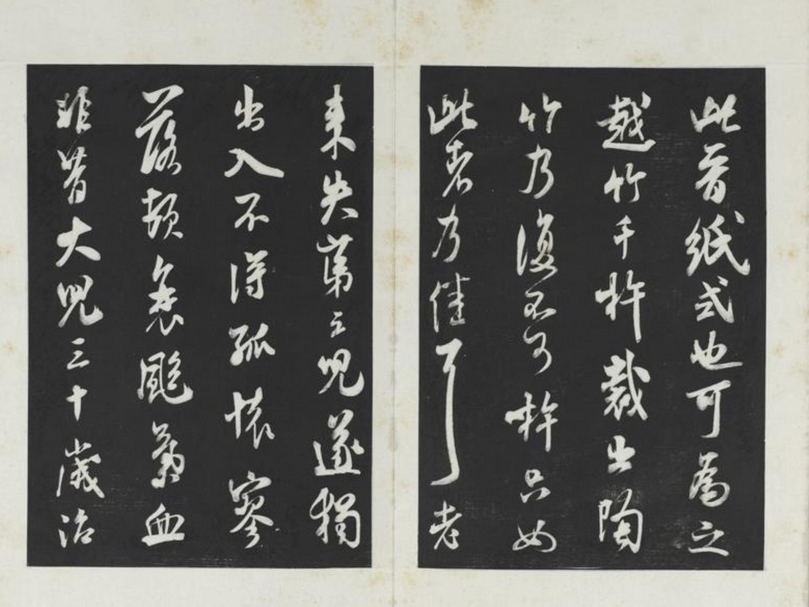 此晉紙式也可為之
越竹千杵裁出陶
竹乃復不可杵只如
此者乃佳耳老
来失第三兒遂獨
出入不得孤懷寥
落頓衰颯氣血
非昔大兒三十歲治